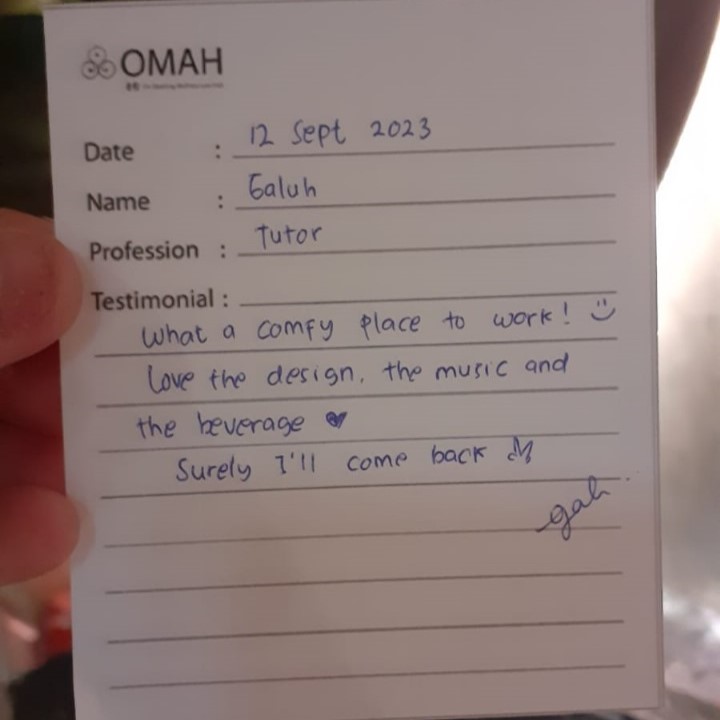 OMAH
Date : 12 Sept 2023
Name : Galuh
Profession : Tutor
Testimonial :
What a comfy place to work! :)
love the design, the music and
the beverage ♥
Surely I'll come back
gal